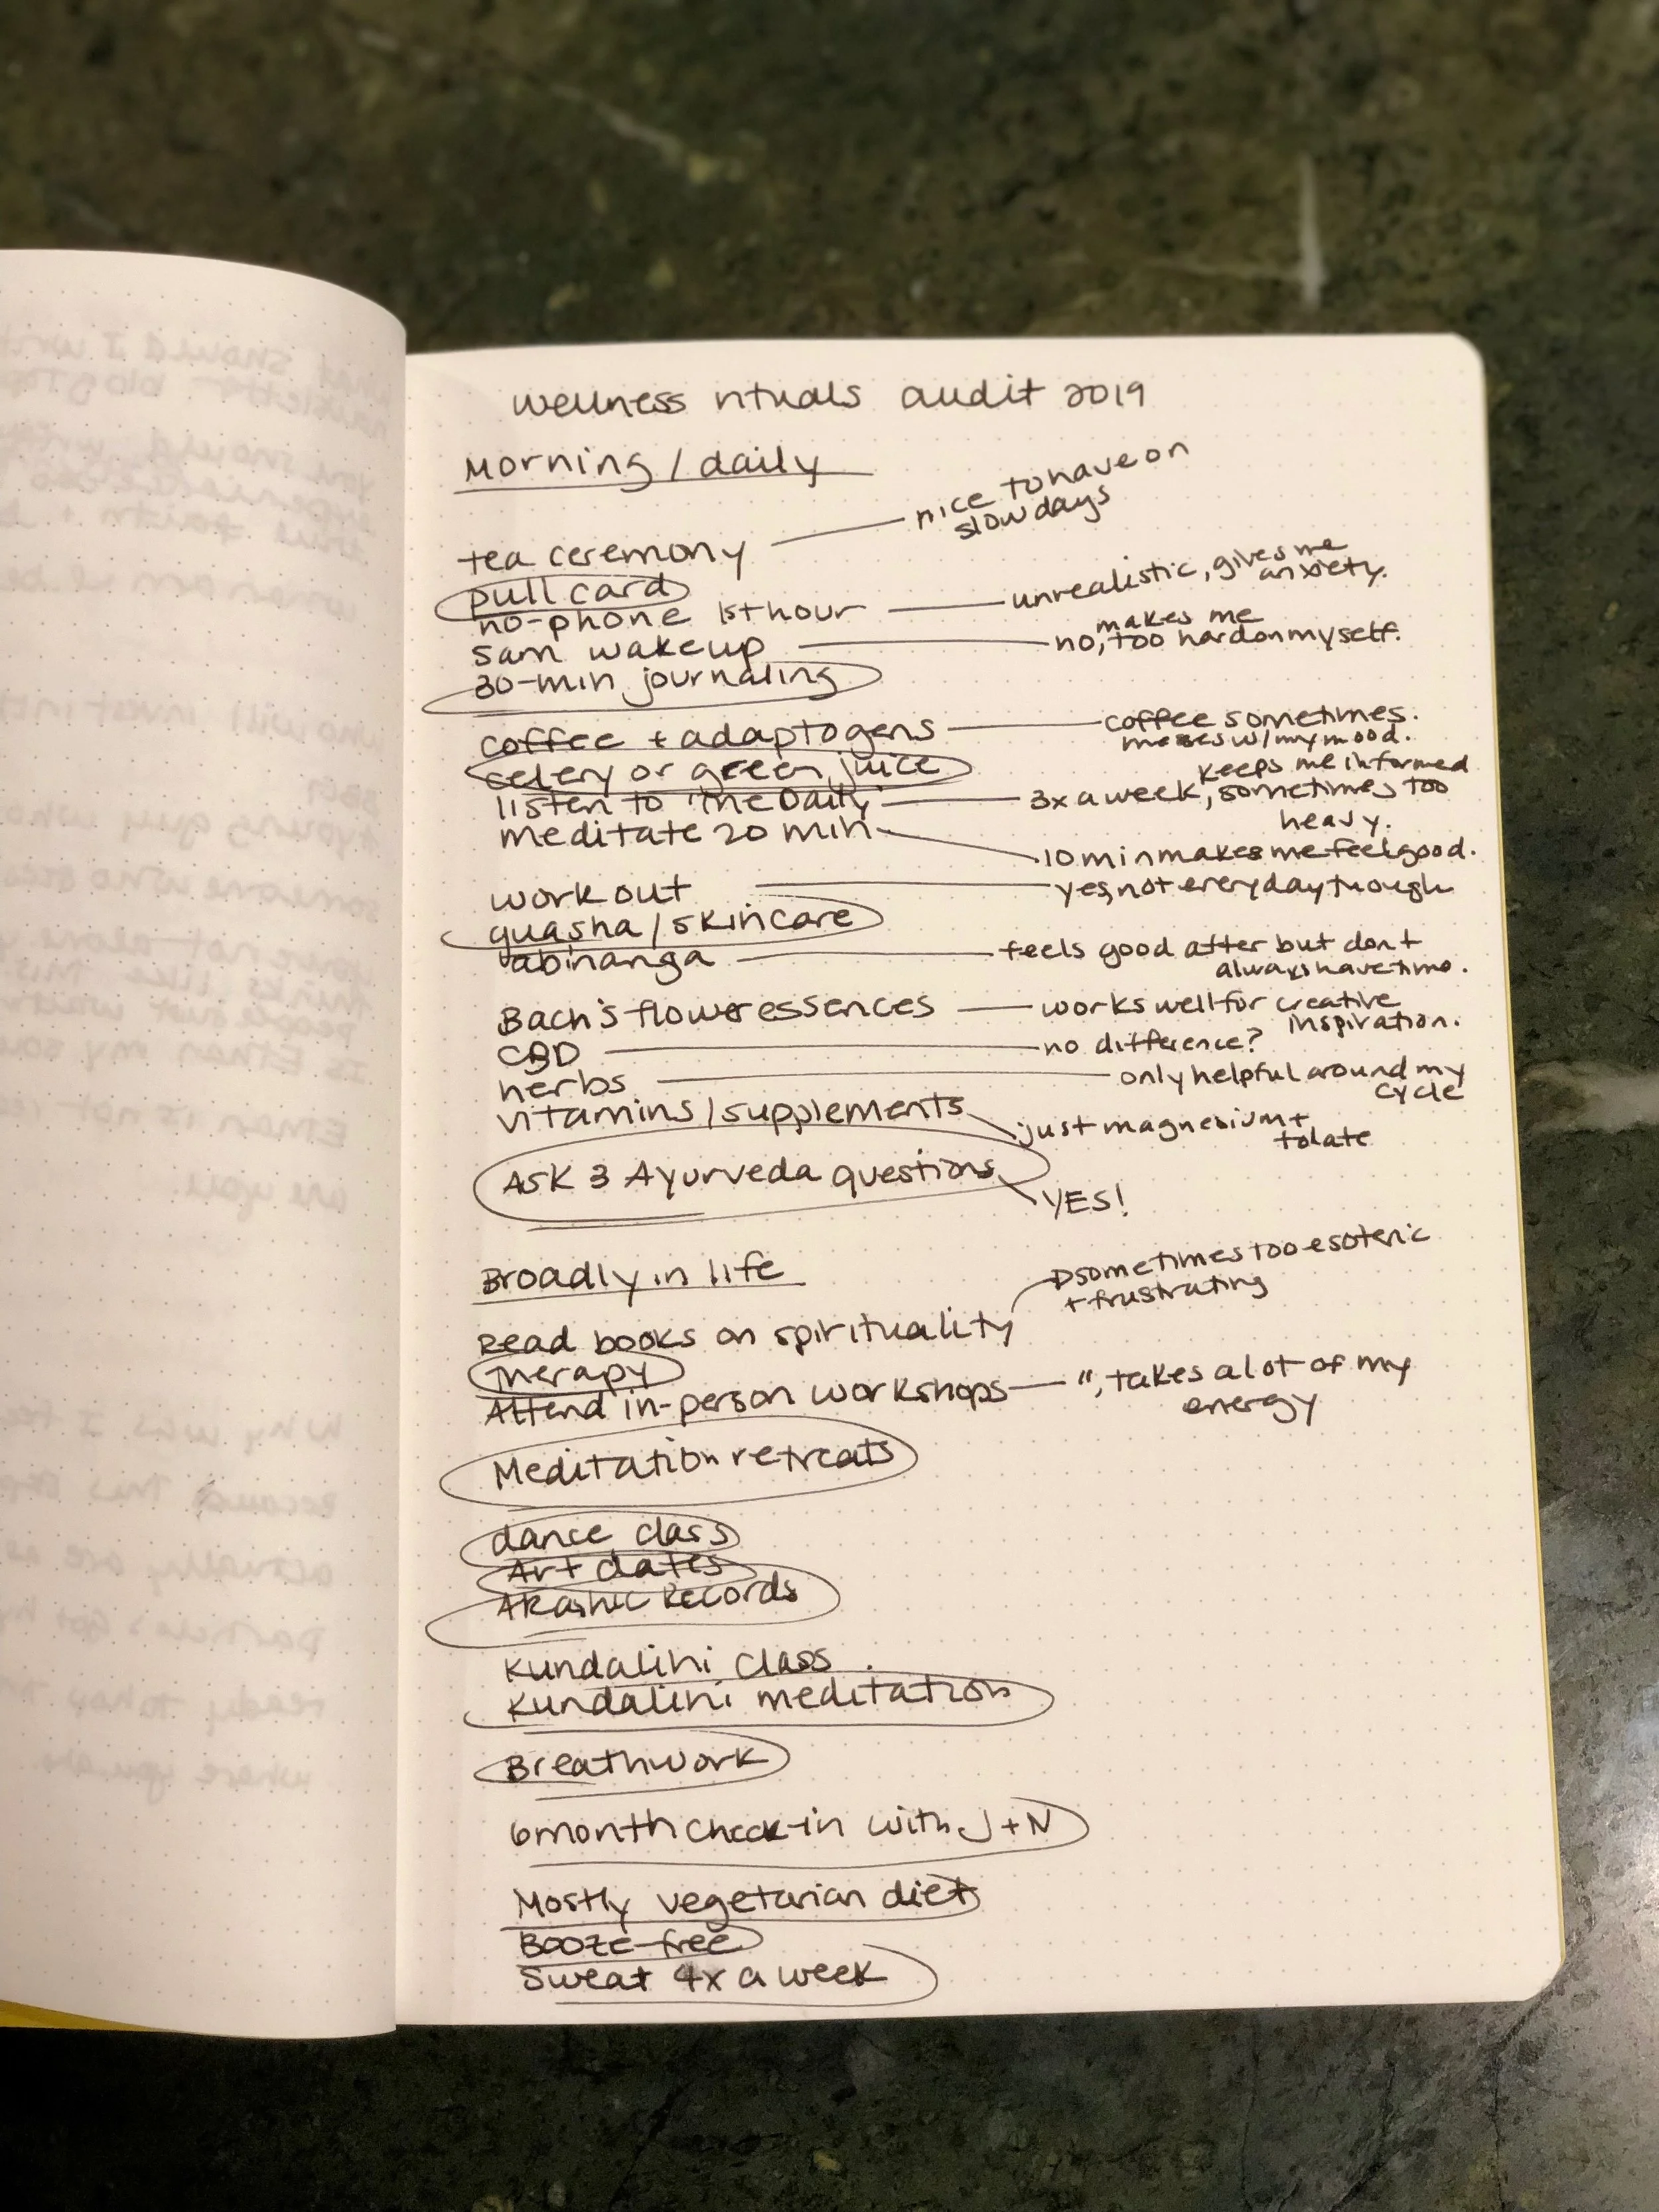 wellness rituals audit 2019
Morning / daily
tea ceremony — nice to have on
slow days
pull card
no-phone 1st hour — unrealistic, gives me
anxiety.
5am wakeup — no, makes me too hard on myself.
30-min journaling
coffee + adaptogens — coffee sometimes.
messes w/ my mood.
celery or green juice
listen to "The Daily" — 3x a week, keeps me informed
sometimes too
heavy.
meditate 20 min — 10 min makes me feel good.
work out — yes, not everyday though
guasha / skincare
abhyanga — feels good after but don't
always have time.
Bach's flower essences — works well for creative
inspiration.
CBD — no difference?
herbs — only helpful around my
cycle
vitamins / supplements — just magnesium +
folate
Ask 3 Ayurveda questions — YES!
Broadly in life
Read books on spirituality → sometimes too esoteric
+ frustrating
therapy
Attend in-person workshops — ", takes a lot of my
energy
Meditation retreats
dance class
Art dates
Akashic Records
Kundalini class
Kundalini meditation
Breathwork
6 month check-in with J + N
Mostly vegetarian diet
Booze-free
Sweat 4x a week